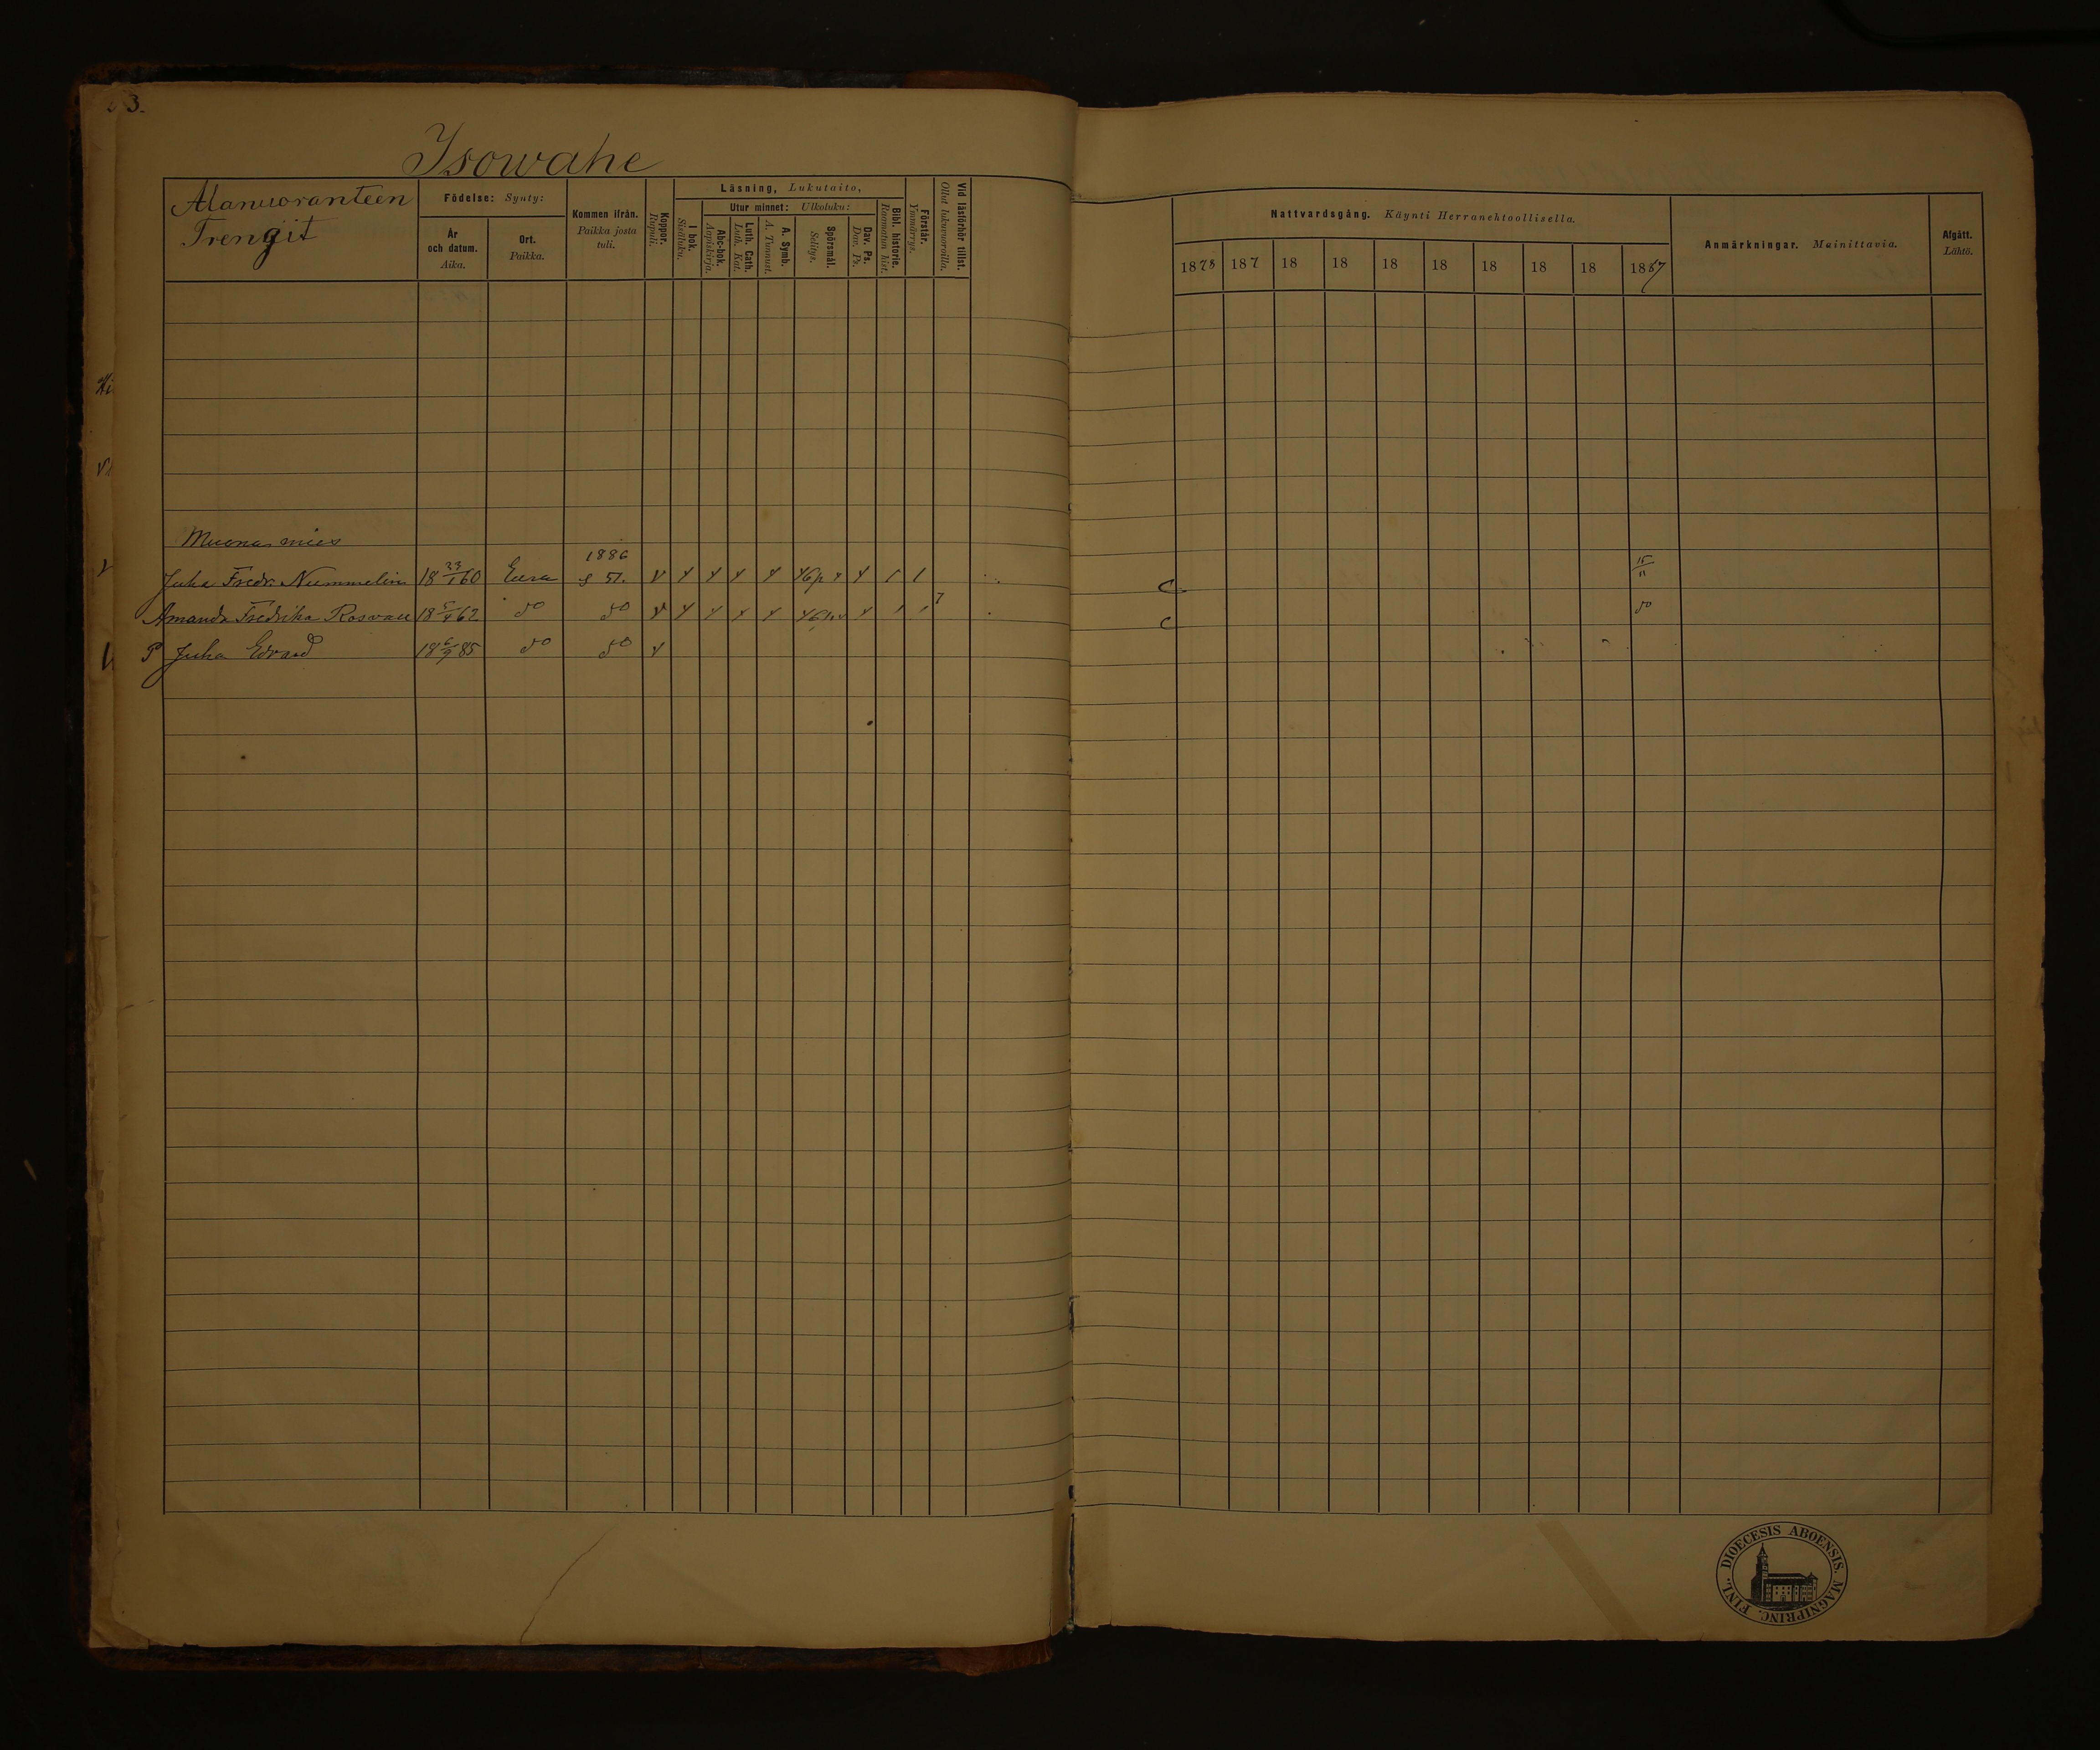 3.
Isowahe
Alanuoranteen
Trengit
Födelse: Synty:
År och datum. Aika.
Ort. Paikka.
Kommen ifrån. Paikka josta tuli.
Koppor. Rupuli.
Läsning, Lukutaito,
I bok. Sisäluku.
Utur minnet: Ulkoluku:
Abc-bok. Aapiskirja.
Luth. Cath. Luth. Kat.
A. Symb. A. Tunnust.
Spörsmål. Selitys.
Dav. Ps. Dav. Ps.
Bibl. historie. Raamatun hist.
Förstår. Ymmärrys.
Vid läsförhör tillst. Ollut lukuvuoroilla.
Nattvardsgång. Käynti Herranehtoollisella.
1878 187 18 18 18 18 18 18 18 1887
Anmärkningar. Mainittavia.
Afgått. Lähtö.
Muona mies
1886
Juha Fredr. Nummelin 18 23/1 60 Eura s 51. 15/11
Amanda Fredrika 18 5/4 62 do do 7 do
P Juha Edvard 18 6/9 85 do do
DIOECESIS ABOENSIS. MAGNIPRINC. FINL.